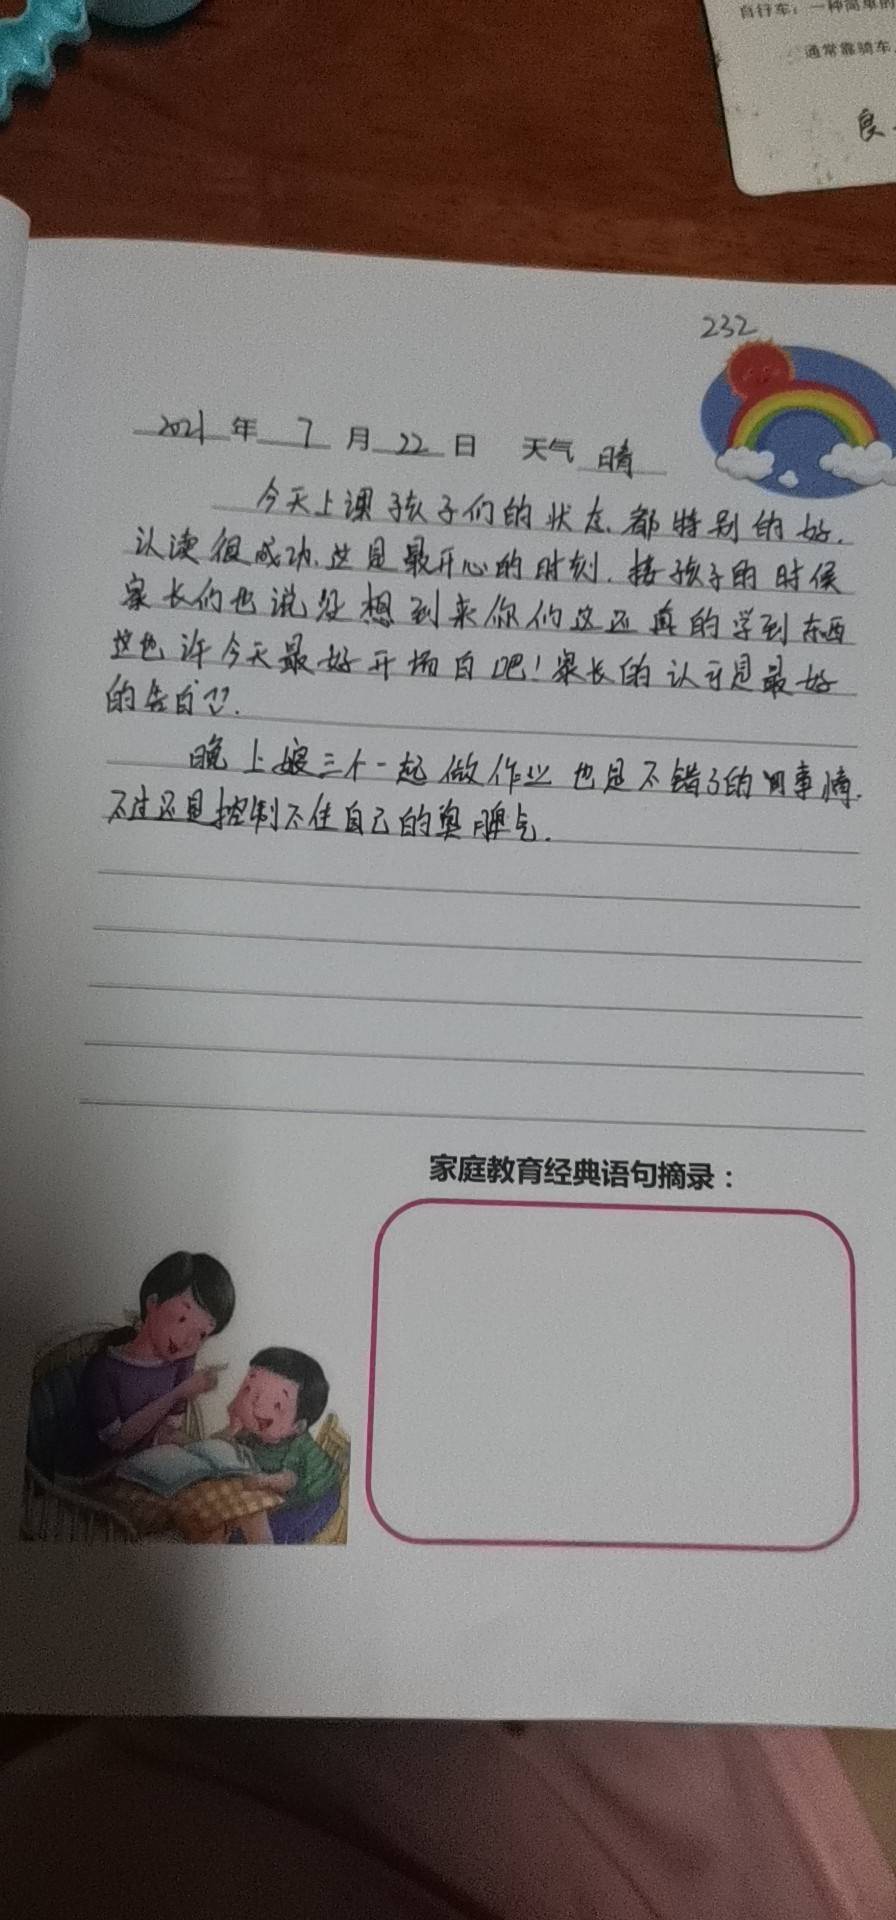 自行车：一种简单的
通常靠骑车
良
232
2021年 7 月 22 日 天气 晴
今天上课孩子们的状态都特别的好.
认读很成功.这是最开心的时刻.接孩子的时候
家长们也说没想到来你们这还真的学到东西
这也许今天最好开场白吧!家长的认可是最好
的告白
晚上娘三个一起做作业也是不错的事情.
不过还是控制不住自己的臭脾气.
家庭教育经典语句摘录：